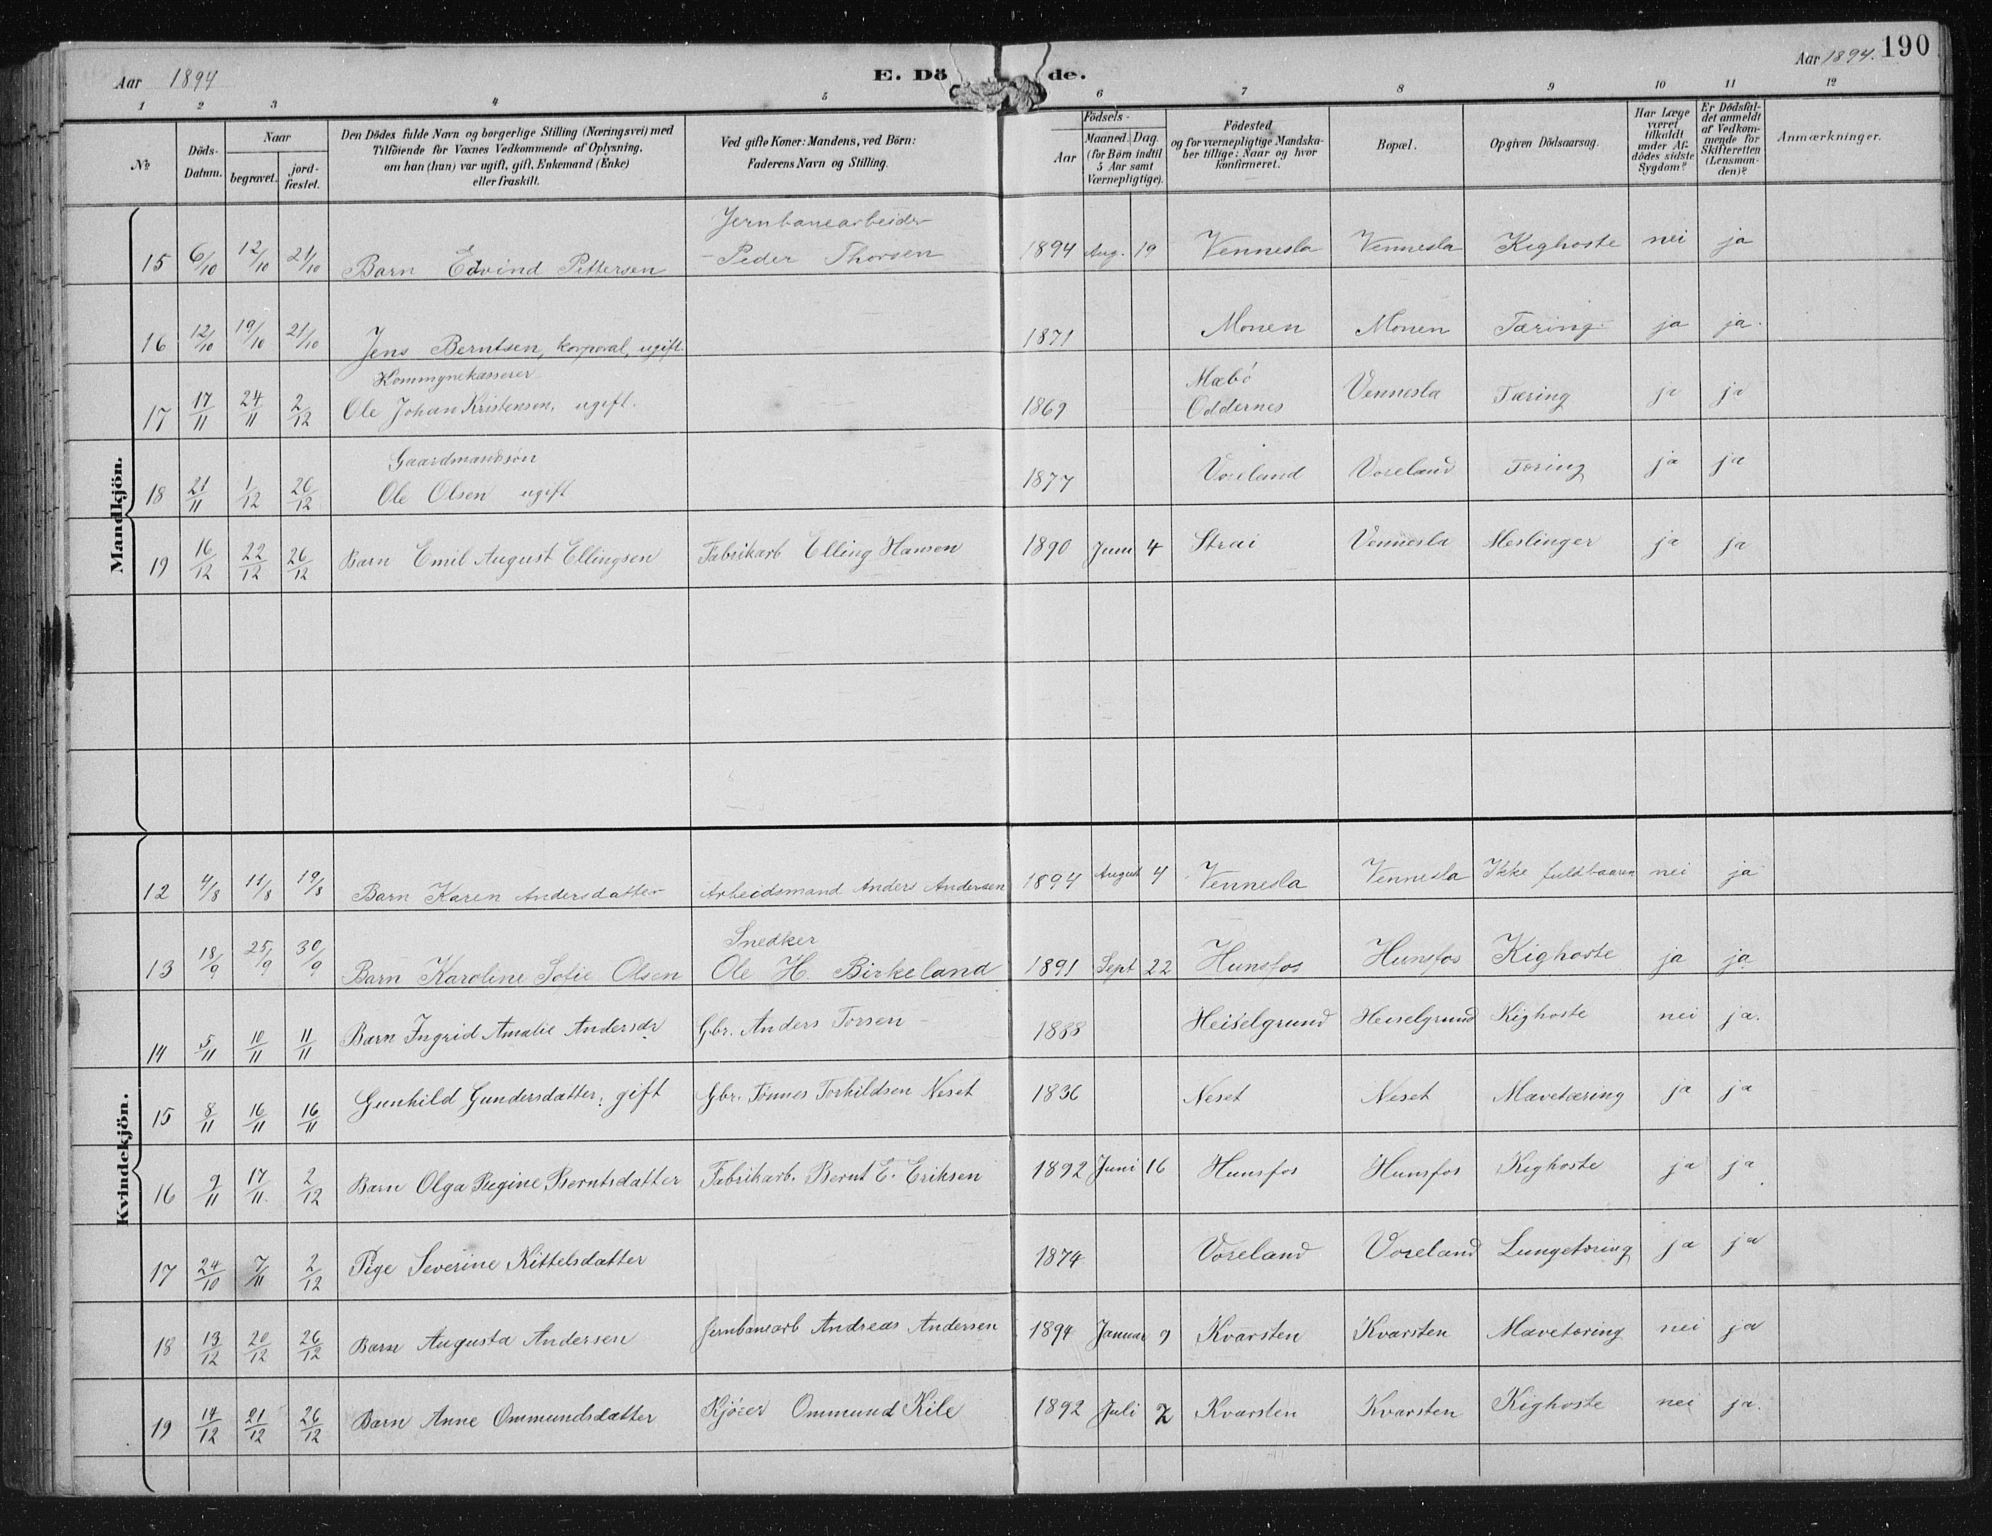 Aar 1894 E. Dö de. Aar 1894. 190
1 2 3 4 5 6 7 8 9 10 11 12
No
Döds-Datum.
Naar
begravet.
jord-fæstet.
Den Dödes fulde Navn og borgerlige Stilling (Næringsvei) med
Tilföiende for Voxnes Vedkommende af Oplysning.
om han (hun) var ugift, gift, Enkemand (Enke)
eller fraskilt.
Ved gifte Koner: Mandens, ved Börn:
Faderens Navn og Stilling.
Födsels-
Aar
Maaned. Dag.
(for Börn indtil
5 Aar samt
Værnepligtige).
Födested
og for værnepligtige Mandska-
ber tillige: Naar og hvor
konfirmeret.
Bopæl.
Opgiven Dödsaarsag.
Har Læge
været
tilkaldt
under Af-
dödes sidste
Sygdom?
Er Dödsfal-
det anmeldt
af Vedkom-
mende for
Skifteretten
(Lensman-
den)?
Anmærkninger.
Mandkjön.
Jernbanearbeider
15 6/10 12/10 21/10 Barn Edvind Pettersen Peder Thorsen 1894 Aug. 19 Vennesla Vennesla Kighoste nei ja
16 12/10 19/10 21/10 Jens Berntsen, korporal, ugift. 1871 Monen Monen Tæring ja ja.
Kommunekasserer Mæbø
17 17/11 24/11 2/12 Ole Johan Kristensen, ugift. 1869 Oddernes Vennesla Tæring ja ja
Gaardmandsøn
18 21/11 1/12 26/12 Ole Olsen ugift 1877 Voreland Voreland Tæring ja ja
19 16/12 22/12 26/12 Barn Emil August Ellingsen Fabrikarb Elling Hansen 1890 Juni 4 Strai Vennesla Meslinger ja ja
Kvindekjön.
12 4/8 11/8 19/8 Barn Karen Andersdatter Arbeidsmand Anders Andersen 1894 August 4 Vennesla Vennesla Ikke fuldbaaren nei ja
Snedker
13 18/9 25/9 30/9 Barn Karoline Sofie Olsen Ole H. Birkeland 1891 Sept 22 Hunsfos Hunsfos Kighoste ja ja
14 5/11 10/11 11/11 Barn Ingrid Amalie Andersdr Gbr. Anders Torsen 1888 Heiselgrund Heiselgrund Kighoste nei ja.
15 8/11 16/11 16/11 Gunhild Gundersdatter, gift Gbr. Tønnes Torkildsen Neset 1836 Neset Neset Mavetæring ja ja
16 9/11 17/11. 2/12 Barn Olga Regine Berntsdatter Fabrikarb. Bernt E. Eriksen 1892 Juni 16 Hunsfos Hunsfos Kighoste ja ja
17 24/10 7/11 2/12 Pige Severine Kittelsdatter 1874 Voreland Voreland Lungetæring ja ja
18 13/12 20/12 26/12 Barn Augusta Andersen Jernbanearb Andreas Andersen 1894 Januar 9 Kvarsten Kvarsten Mavetæring nei ja
19 14/12 21/12 26/12 Barn Anne Ommundsdatter Kjører Ommund Kile 1892 Juli 2 Kvarsten Kvarsten Kighoste nei ja.